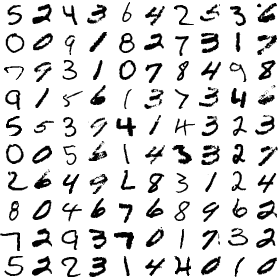 5 2 4 3 6 4 2 5 3
0 0 9 1 8 2 7 3 1
7 9 3 1 0 7 8 4 9 8
9 1 5 6 1 3 7 3 4
5 5 3 9 4 1 4 3 2 3
0 0 5 1 4 3 3 2 7
2 6 4 2 8 3 1 2 4
8 0 4 6 7 6 8 9 6 2
7 2 9 3 7 0 1 9 3 2
5 2 2 3 1 4 4 0 1